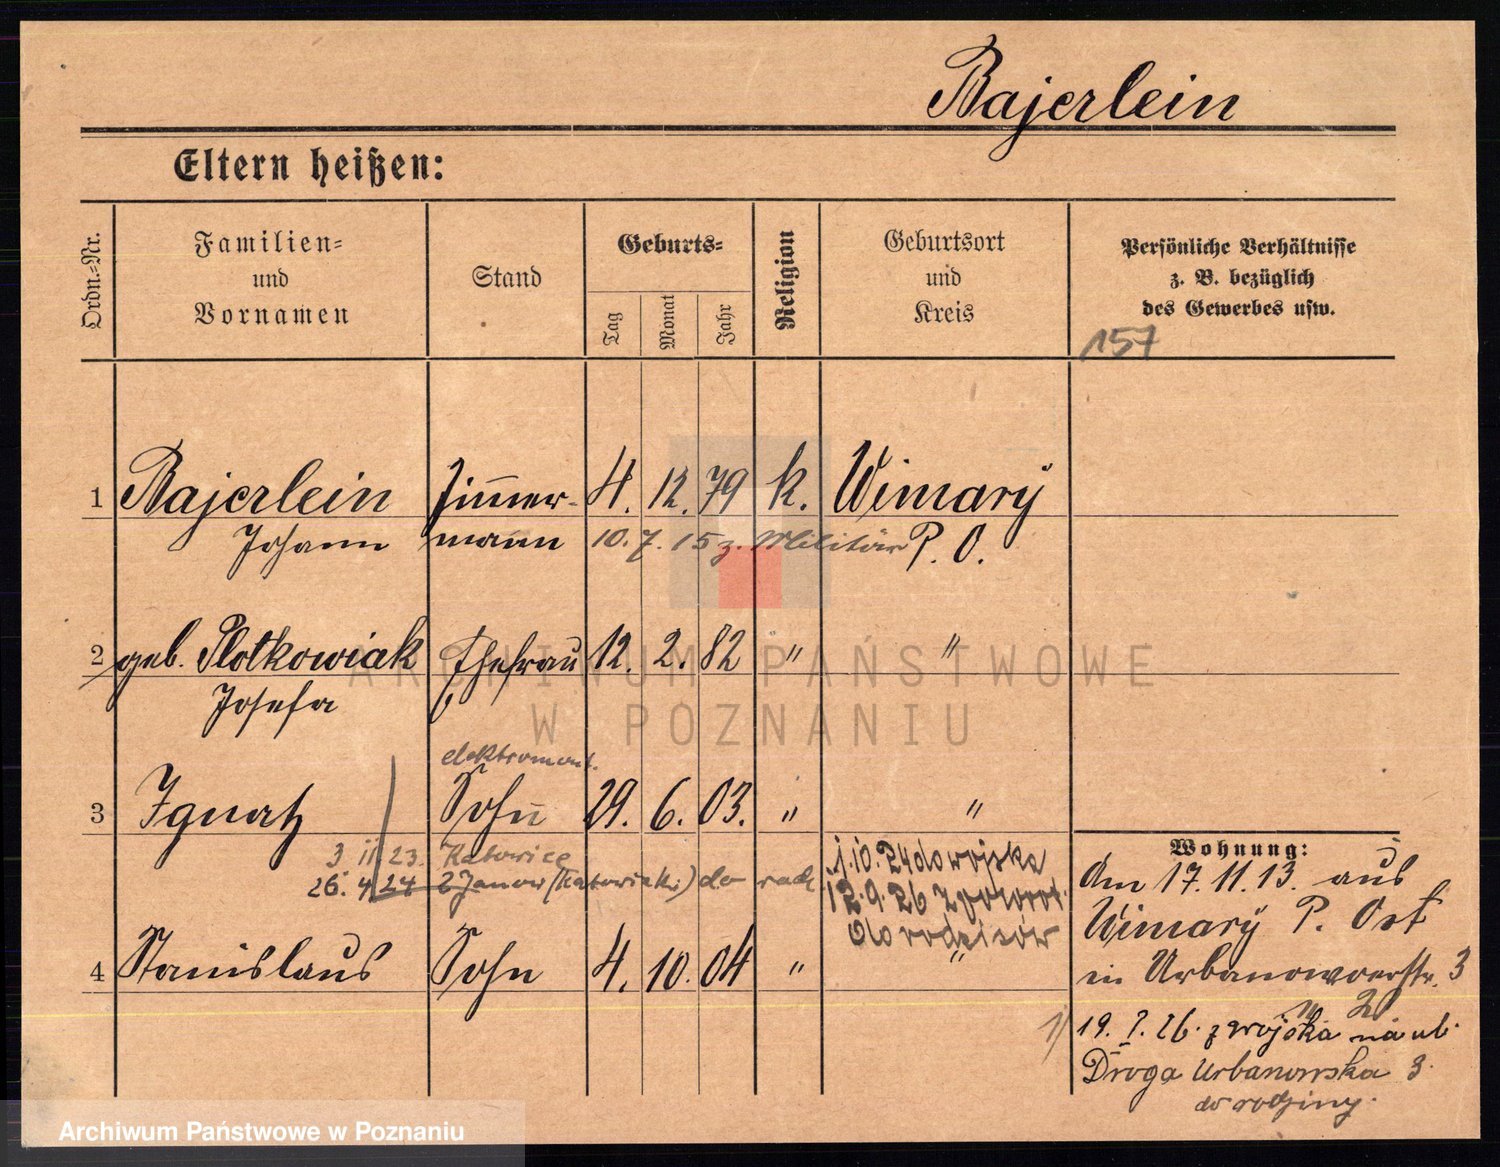 Bajerlein
Eltern heißen:
Ordn.=Nr.
Familien=
und
Vornamen
Stand
Geburts=
Tag
Monat
Jahr
Religion
Geburtsort
und
Kreis
Persönliche Verhältnisse
z. B. bezüglich
des Gewerbes usw.
157
1 Bajerlein Zimmer- 4. 12. 79 k. Wimary
Johann mann 10. 7. 15 z. Militär P. O.
2 geb. Plotkowiak Ehefrau 12. 2. 82 " "
Josefa
elektromont.
3 Ignatz Sohn 29. 6. 03. " "
3 11 23. Katowice
26. 4 24 Janow (Katowicki) do rodz
1.10.24 do wojska
12.9.26 z powrot.
do rodziców
4 Stanislaus Sohn 4. 10. 04 " "
Wohnung:
Am 17.11.13. aus
Wimary P. Ost
in Urbanowoerstr. 3
" 2
1/ 19. I. 26. z wojska na ul.
Droga Urbanowska 3.
do rodziny.
ARCHIWUM PAŃSTWOWE
W POZNANIU
Archiwum Państwowe w Poznaniu